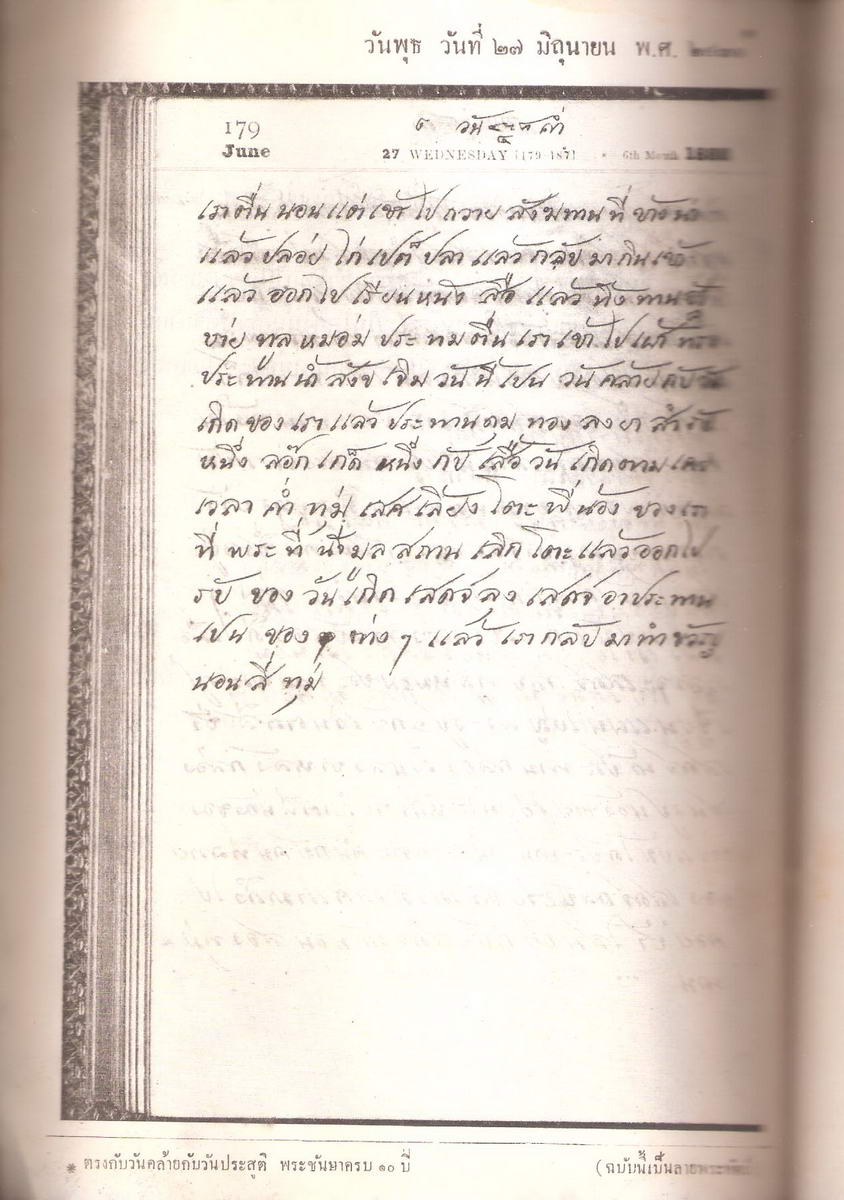 วันพุธ วันที่ ๒๗ มิถุนายน พ.ศ.
179
June
27 WEDNESDAY [179-187] 6th Month
เราตื่นนอนแต่เช้า ไปถวาย สังฆทานที่ ข้าง
แล้วปล่อย ไก่ เป็ด ปลา แล้วกลับมากินเข้า
แล้วออกไปเรียนหนังสือ แล้ว
บ่าย ทูลหม่อม ประทมตื่น เราเข้าไปเฝ้า
ประทานน้ำสังข เจิม วันนี้เปน วันคล้ายกับวัน
เกิดของเรา แล้วประทานดุม ทอง ลงยา สำรับ
หนึ่ง ลอ๊กเก็ต หนึ่ง กับเสื้อวันเกิดตามเคย
เวลา ค่ำ ทุ่มเสศ เลี้ยงโตะ พี่น้อง ของเรา
ที่ พระที่นั่งมูลสถาน เลิกโตะแล้วออกไป
รับ ของวันเกิด เสดจลุง เสดจอาประทาน
เปน ของ ต่าง ๆ แล้ว เรากลับมาทำขวัญ
นอนสี่ทุ่ม
* ตรงกับวันคล้ายกับวันประสูติ พระชันษาครบ ๑๐ ปี
(ฉบับนี้เป็นลายพระหัตถ์